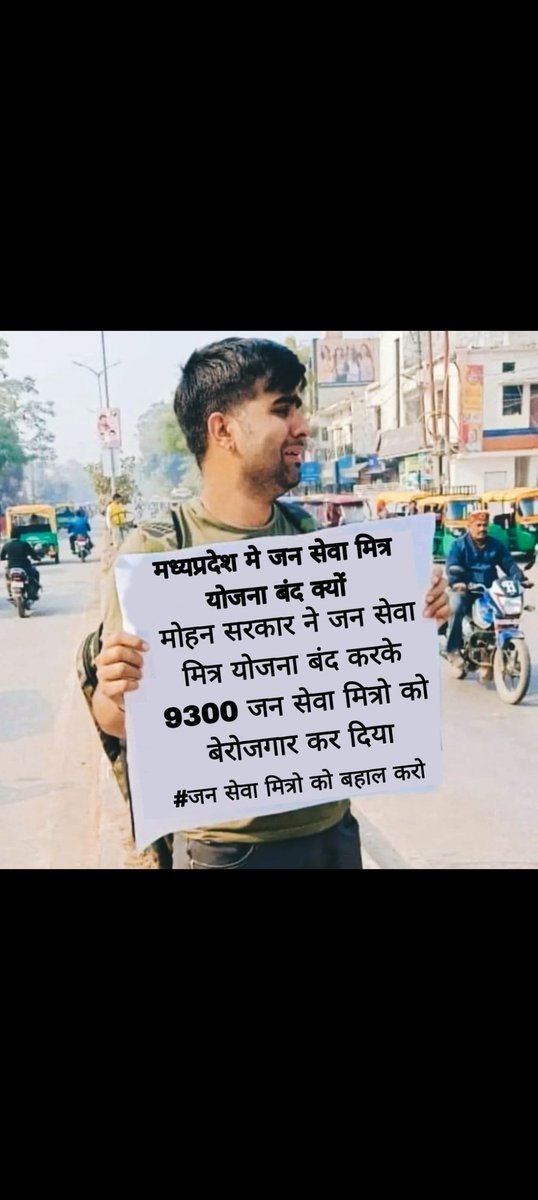 मध्यप्रदेश मे जन सेवा मित्र
योजना बंद क्यों
मोहन सरकार ने जन सेवा
मित्र योजना बंद करके
9300 जन सेवा मित्रो को
बेरोजगार कर दिया
#जन सेवा मित्रो को बहाल करो